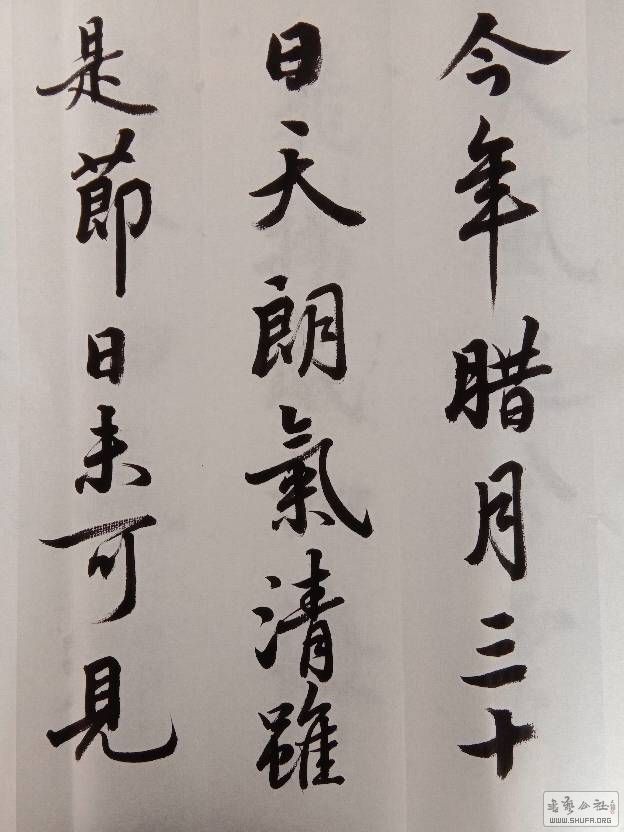 今年腊月三十
日天朗氣清雖
是節日未可見
WWW.SHUFA.ORG